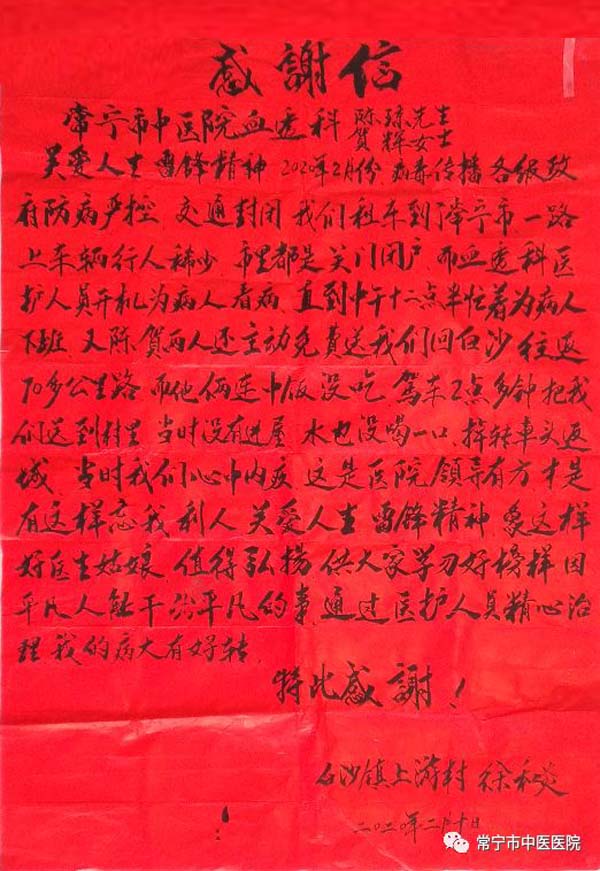 感謝信
常宁市中医院血透科 陈臻先生
贺辉女士
关爱人生 雷锋精神 2020年2月份、病毒传播 各级政
府防病严控 交通封闭 我们租车到常宁市、一路
上车辆行人稀少 市里都是关门闭户、而血透科医
护人员开机为病人看病、直到中午十二点半忙着为病人
下班、又陈、贺两人还主动免费送我们回白沙 往返
70多公里路 而他俩连中饭没吃、驾车2点多钟把我
们送到村里 当时没有进屋 水也没喝一口、转車头返
城、当时我们心中内疚 这是医院领导有方 才是
有这样忘我利人 关爱人生 雷锋精神 象这样
好医生姑娘 值得弘扬 供大家学习好榜样 因
平凡人能干出平凡的事、通过医护人员精心治
理、我的病大有好转、
特此感謝！
白沙镇上游村 徐
二〇二〇年二月十日
常宁市中医医院